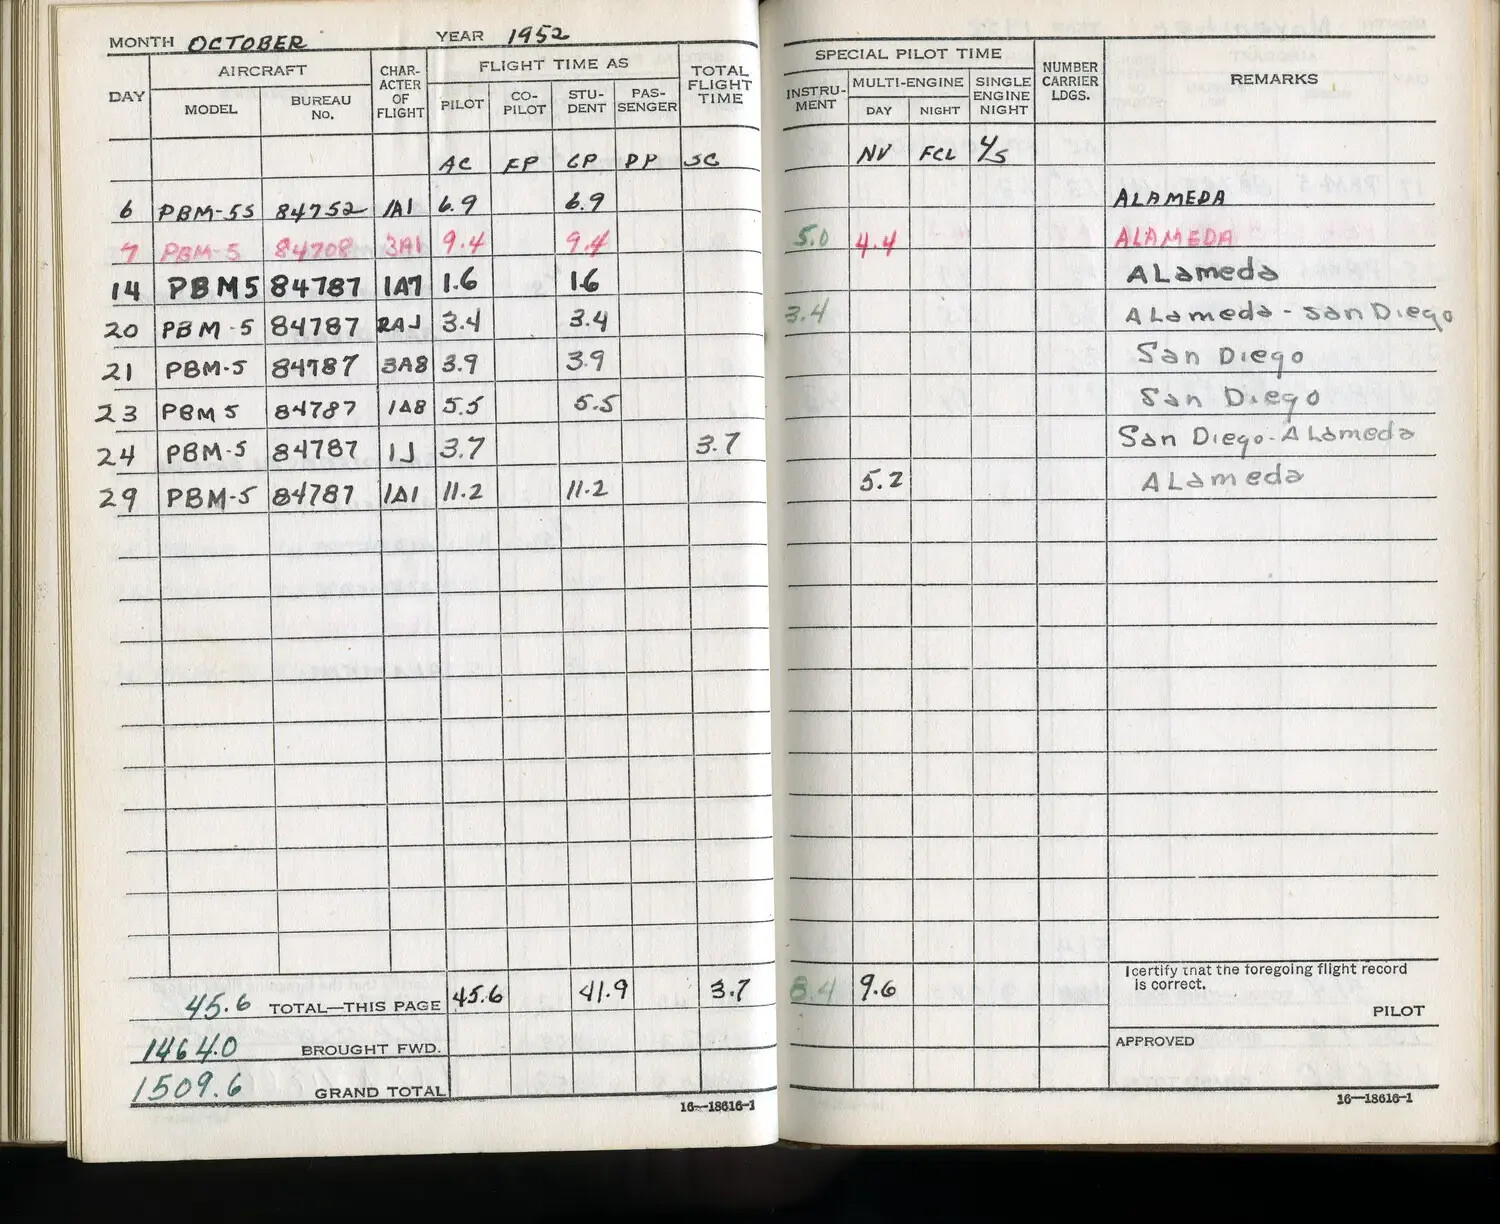 MONTH OCTOBER YEAR 1952
DAY AIRCRAFT CHARACTER OF FLIGHT FLIGHT TIME AS TOTAL FLIGHT TIME
MODEL BUREAU No. PILOT CO-PILOT STUDENT PASSENGER
SPECIAL PILOT TIME NUMBER CARRIER LDGS. REMARKS
INSTRUMENT MULTI-ENGINE SINGLE ENGINE NIGHT
DAY NIGHT
AC FP CP PP SC NV FCL 4/5
6 PBM-5S 84752 1A1 6.9 6.9 ALAMEDA
7 PBM-5 84708 3A1 9.4 9.4 5.0 4.4 ALAMEDA
14 PBM5 84787 1A7 1.6 1.6 ALameda
20 PBM-5 84787 2AJ 3.4 3.4 3.4 ALameda - San Diego
21 PBM-5 84787 3A8 3.9 3.9 San Diego
23 PBM 5 84787 1A8 5.5 5.5 San Diego
24 PBM-5 84787 1J 3.7 3.7 San Diego-ALameda
29 PBM-5 84787 1A1 11.2 11.2 5.2 ALameda
45.6 TOTAL—THIS PAGE 45.6 41.9 3.7 8.4 9.6
1464.0 BROUGHT FWD.
1509.6 GRAND TOTAL
16—18616-1
I certify that the foregoing flight record
is correct.
PILOT
APPROVED
16—18616-1